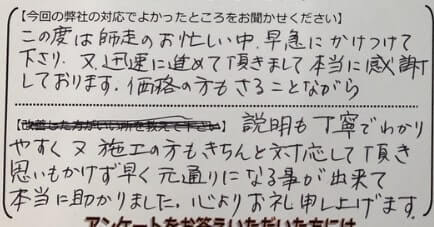 【今回の弊社の対応でよかったところをお聞かせください】
この度は師走のお忙しい中、早急にかけつけて
下さり、又、迅速に進めて頂きまして本当に感謝
しております。価格の方もさることながら
【改善した方がいい所を教えて下さい】 説明も丁寧でわかり
やすく又施工の方もきちんと対応して頂き
思いもかけず早く元通りになる事が出来て
本当に助かりました。心よりお礼申し上げます。
アンケートをお答えいただいた方には